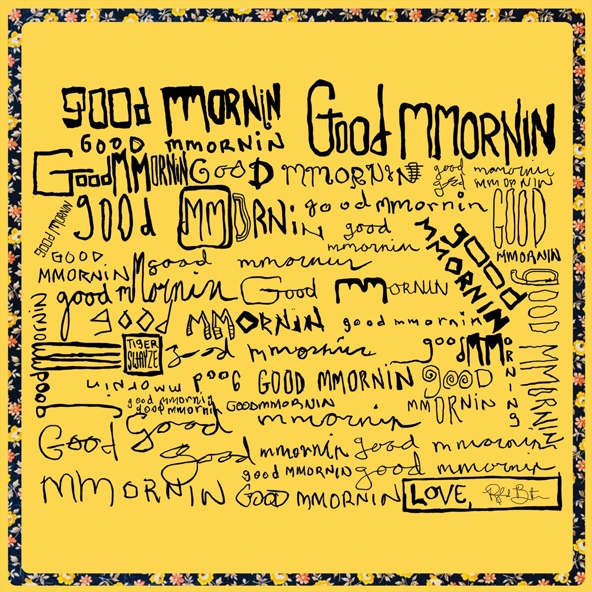 good mmornin Good mmornin
GOOD mmORNiN
Good MMORNiN GooD MMORNiN good mmornin
good mmornin
GOOD MMORNiN good mmornin GOOD
GOOD MMORNIN good
mmornin MMORNIN
GOOD MMORNIN good mmornin good MMORNIN
good mmornin Good MMORNIN GOOD MMORNIN
good MMORNiN good mmornin
GOOD MMORNIN TiGER SWAYZE good mmornin good MMORNING
good mmornin GOOD MMORNIN good
good mmornin
good mmornin GOODMMORNIN MMORNIN
Good good mmornin
Good mmornin good mmornin
good MMORNIN good mmornin
MMORNIN GOOD MMORNIN LOVE,